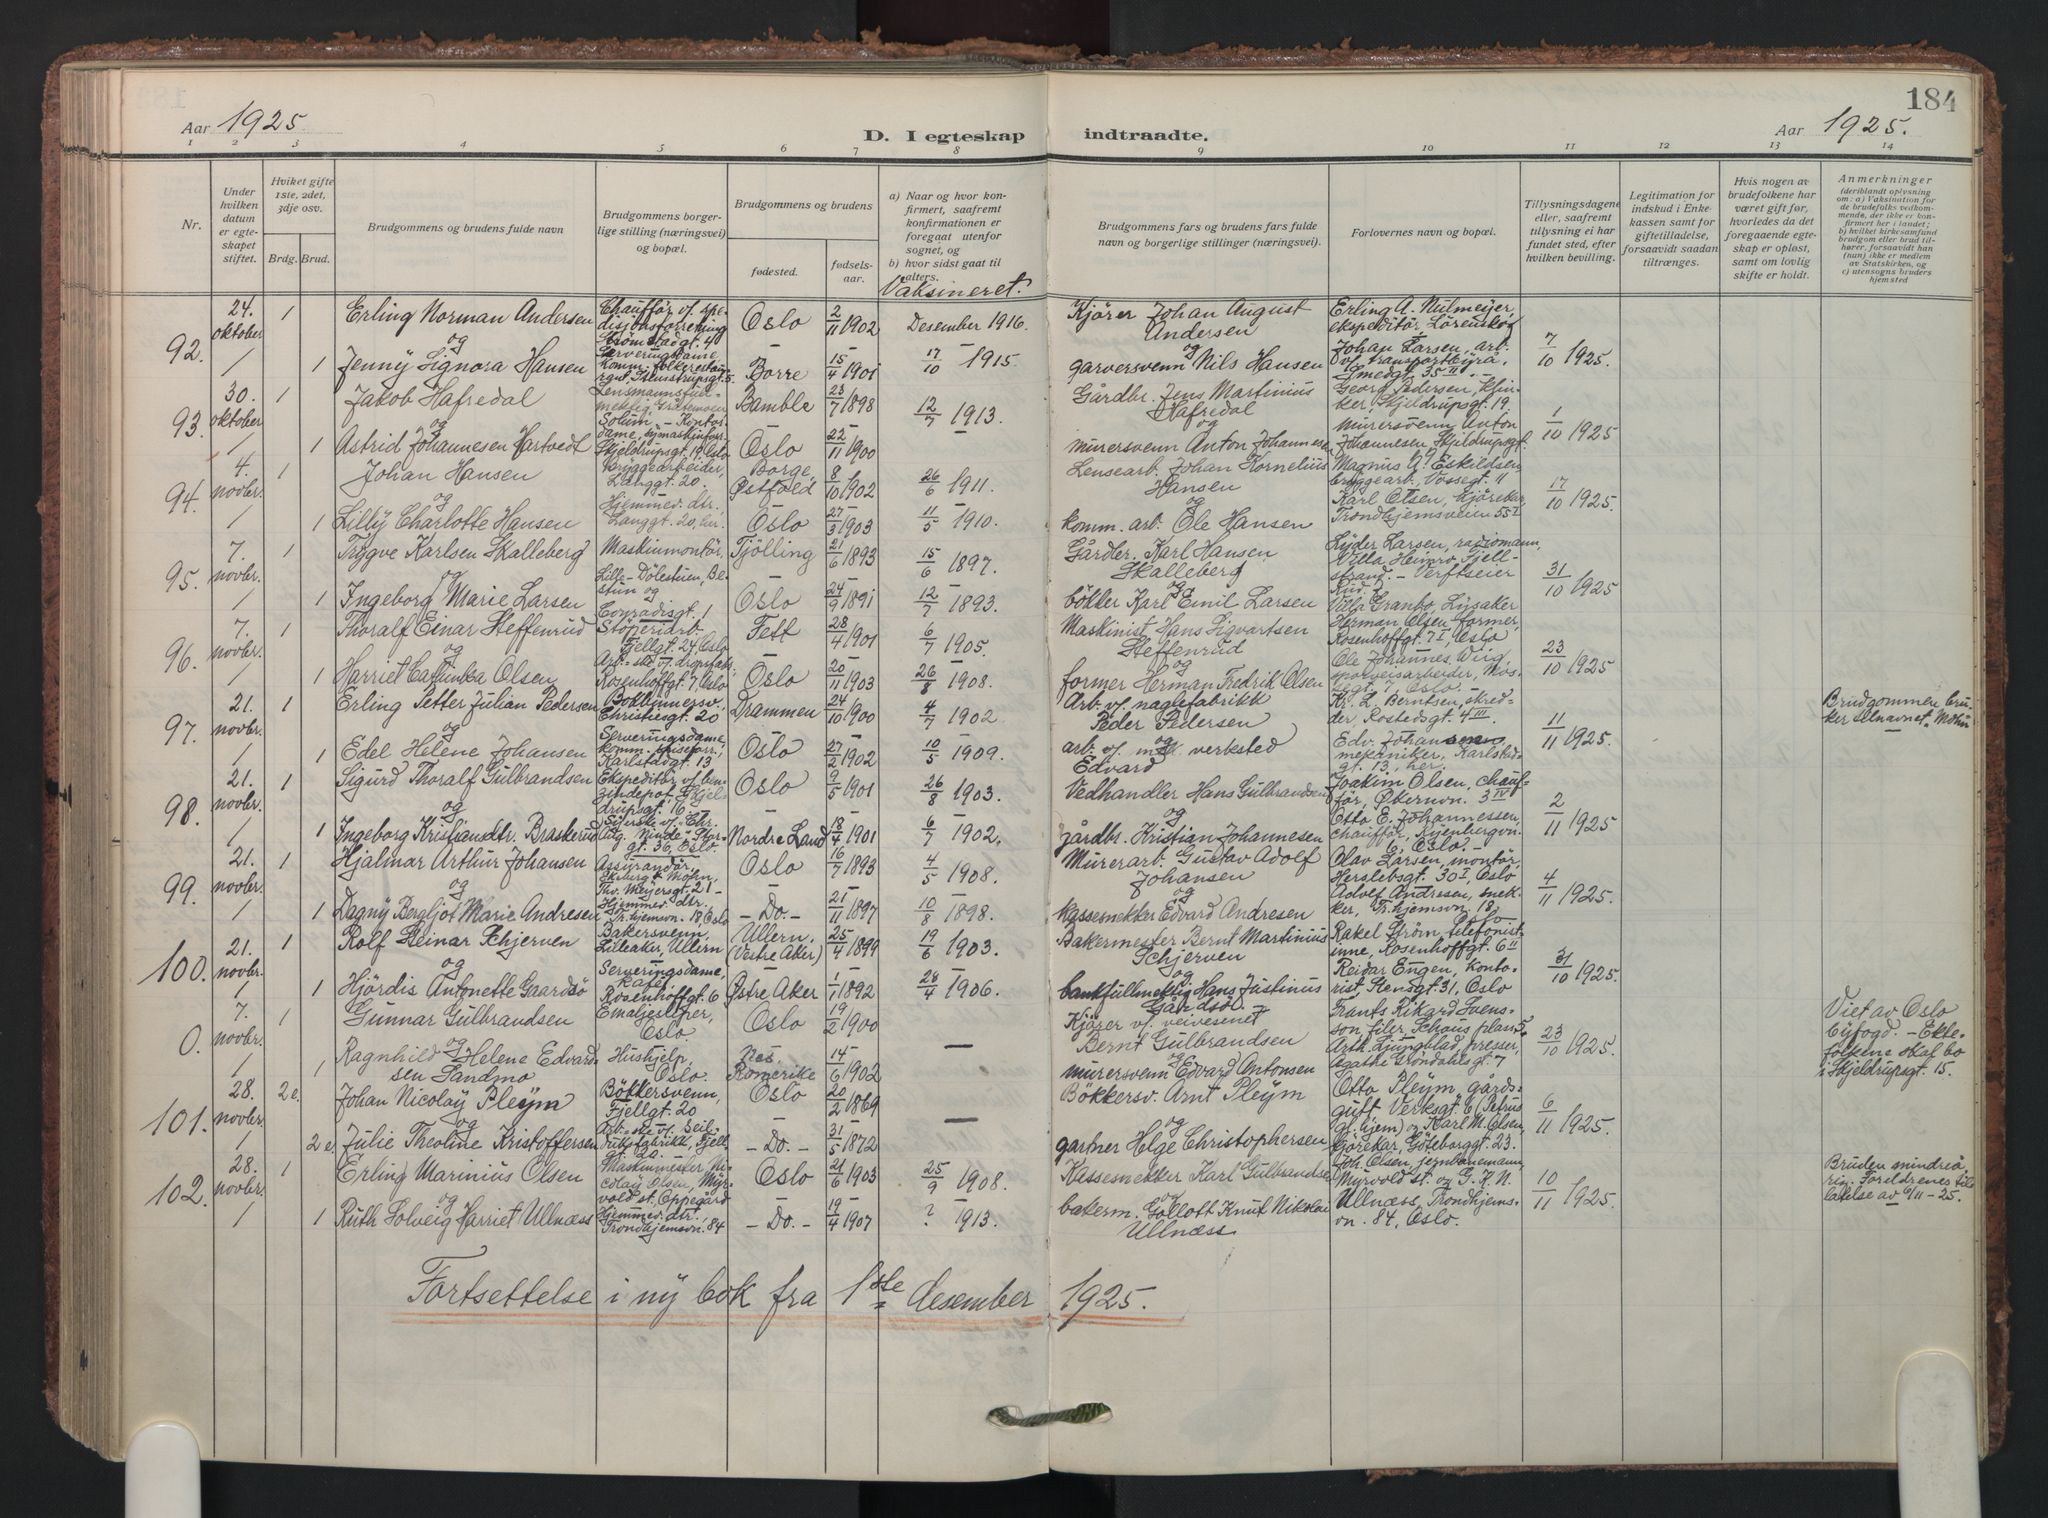 184
Aar 1925.
D. I egteskap indtraadte.
Aar 1925.
1 2 3 4 5 6 7 8 9 10 11 12 13 14
Nr.
Under hvilken datum er egteskapet stiftet.
Hviket gifte 1ste, 2det, 3dje osv.
Brdg. Brud.
Brudgommens og brudens fulde navn
Brudgommens borgerlige stilling (næringsvei) og bopæl.
Brudgommens og brudens
fødested.
fødselsaar.
a) Naar og hvor konfirmert, saafremt konfirmationen er foregaat utenfor sognet, og
b) hvor sidst gaat til alters.
Vaksineret.
Brudgommens fars og brudens fars fulde navn og borgerlige stillinger (næringsvei).
Forlovernes navn og bopæl.
Tillysningsdagene eller, saafremt tillysning ei har fundet sted, efter hvilken bevilling.
Legitimation for indskud i Enkekassen samt for giftetilladelse, forsaavidt saadan tiltrænges.
Hvis nogen av brudefolkene har været gift før, hvorledes da det foregaaende egteskap er opløst, samt om lovlig skifte er holdt.
Anmerkninger
(deriblandt oplysning om: a) Vaksination for de brudefolks vedkommende, der ikke er konfirmert her i landet; b) hvilket kirkesamfund brudgom eller brud tilhører, forsaavidt han (hun) ikke er medlem av Statskirken, og c) utensogns bruders hjemsted
92. 24. oktober 1 Erling Norman Andersen Chauffør v. spedisjonsforretning Strømstadgt. 4 Oslo 2/11 1902 Desember 1916. Kjører Johan August Andersen Erling A. Nulmeijer, ekspeditør, Lörenskog
og
1 Jenny Signora Hansen Serveringsdame Borre 15/4 1901 17/10 1915. garversvenn Nils Hansen Johan Larsen, arb. v. transportbyrå, Smedgt. 35 II. 7/10 1925
93. 30. oktober 1 Jakob Hafredal Bamble 23/7 1898 12/7 1913. Gårdbr. Jens Martinius Hafredal Georg Pedersen, Skjeldrupsgt. 19.
og
1 Astrid Johannesen Hartvedt Skjeldrupsgt. 19, Oslo Oslo 22/11 1900 murersvenn Anton Johannesen murersvenn Anton Johannesen, Skjeldrupsgt. 1/10 1925
94. 4. novbr. 1 Johan Hansen Bryggearbeider, Langgt. 20. Borge, Østfold 8/10 1902 26/6 1911. Lensearb. Johan Kornelius Hansen Magnus A. Eskildsen bryggearb., Vossegt. 11
og
1 Lilly Charlotte Hansen Hjemmev. dtr., Langgt. 20, her Oslo 27/3 1903 11/5 1910. komm. arb. Ole Hansen Karl Olsen, kjørekar, Trondhjemsveien 55 I 17/10 1925.
95. 7. novbr. 1 Trygve Karlsen Skalleberg Maskinmontör, Tjölling 21/6 1893 15/6 1897. Gårdbr. Karl Hansen Skalleberg Lyder Larsen, radiomann, Villa Heimro, Fjellstrand. - Verftseier
og
1 Ingeborg Marie Larsen Conradisgt. 1 Oslo 24/9 1891 12/7 1893. bökker Karl Emil Larsen Villa Granbo, Lysaker 31/10 1925
96. 7. novbr. 1 Thoralf Einar Steffenrud Fjellgt. 24, Oslo Fett 28/4 1901 6/7 1905. Maskinist Hans Sigvartsen Steffenrud Herman Olsen former, Rosenhoffgt. 7 I, Oslo
og
1 Harriet Cathinka Olsen Rosenhoffgt. 7, Oslo Oslo 20/11 1903 26/8 1908. former Herman Fredrik Olsen Ole Johannes Wiig sporveisarbeider, Oslo. 23/10 1925
97. 21. novbr. 1 Erling Petter Julian Pedersen Christiesgt. 20 Drammen 24/10 1900 4/7 1902. Arb. v. naglefabrikk Peder Pedersen Kr. L. Berntsen, skredder, Rostedsgt. 4 III Brudgommen bruker
og
1 Edel Helene Johansen Serveringsdame, Karlstadgt. 13 Oslo 27/2 1902 10/5 1909. arb. v. mek. verksted Edvard Edv. Johansen mekaniker, Karlstadgt. 13, her. 11/11 1925.
98. 21. novbr. 1 Sigurd Thoralf Gulbrandsen Ekspeditör v. benzindepot, Skjeldrupsgt. 16 Oslo 9/5 1901 26/8 1903. Vedhandler Hans Gulbrandsen Joakim Olsen, chauffør, Økernvn. 3 IV
og
1 Ingeborg Kristiansdtr. Braskerud Storgt. 36, Oslo. Nordre Land 18/4 1901 6/7 1902. gårdbr. Kristian Johannesen Otto E. Johannessen, chauffør, Ryenbergvn. 6, Oslo. 2/11 1925
99. 21. novbr. 1 Hjalmar Arthur Johansen Assurandör Th. Meyersgt. 21 Oslo 16/7 1893 4/5 1908. Murerarb. Gustav Adolf Johansen Olav Larsen, montör, Herslebsgt. 30 I, Oslo
og
1 Dagny Bergljot Marie Andresen Hjemmev. dtr. Tr.hjemsvn. 18 Oslo - Do. - 21/11 1897 10/8 1898. kassesnekker Edvard Andresen Adolf Andresen, snekker, Tr.hjemsvn. 18, Oslo 4/11 1925.
100. 21. novbr. 1 Rolf Steinar Schjerven Bakersvenn, Lilleaker, Ullern Ullern, (Vestre Aker) 25/4 1899 19/6 1903. Bakermester Bernt Martinius Schjerven Rakel Strøm, telefonistinne, Rosenhoffgt. 6 II
og
1 Hjördis Antonette Gaardsö Serveringsdame, Kafe, Rosenhoffgt. 6 Østre Aker 1/11 1892 28/4 1906. bankfullmektig Hans Justinus Gårdsö Reidar Engen, kontorist, Stensgt. 31, Oslo 31/10 1925
0. 7. novbr. 1 Gunnar Gulbrandsen Emaljesliper, Oslo. Oslo 19/2 1900 Kjører v. veivesenet Bernt Gulbrandsen Frants Rikard Svensson, filer, Schous plass 5. Viet av Oslo byfogd. - Ektefolkene skal bo i Skjeldrupsgt. 15.
og
1 Ragnhild Helene Edvardsen Sandmo Hushjelp, Oslo. Nes, Romerike 14/6 1902 — murersvenn Edvard Antonsen Arth. Ljungblad, presser, Agathe Grøndahlsgt. 7 23/10 1925.
101. 28. novbr. 2 e. Johan Nicolay Pleym Bökkersvenn, Fjellgt. 20 Oslo 20/2 1869 — Bökkersv. Arnt Pleym Otto Pleym, gårdsgutt, Verksgt. 6 (Petrus
og
1 2 e. Julie Theoline Kristoffersen Fjellgt. 20. - Do. - 31/5 1872 gartner Helge Christophersen gl. hjem) og Karl M. Olsen kjørekar, Göteborggt. 23. 6/11 1925.
102. 28. novbr. 1 Erling Marinius Olsen Maskinmester Nicolay Olsen, Myrvold st. Oppegård Oslo 21/6 1903 25/9 1908. Kassesnekker Karl Gulbrandsen Joh. Olsen, jernbanemann, Myrvold st. og G. K. N. Bruden mindreårig. Foreldrenes tillatelse av 6/11 - 25.
og
1 Ruth Solveig Harriet Ullnæss Hjemmev. dtr. Trondhjemsvn. 84 - Do. - 19/4 1907 ? 1913. bakerm. Gollott Knut Nikolai Ullnæss Ullnæss, Trondhjemsvn. 84, Oslo. 10/11 1925.
Fortsettelse i ny bok fra 1ste desember 1925.